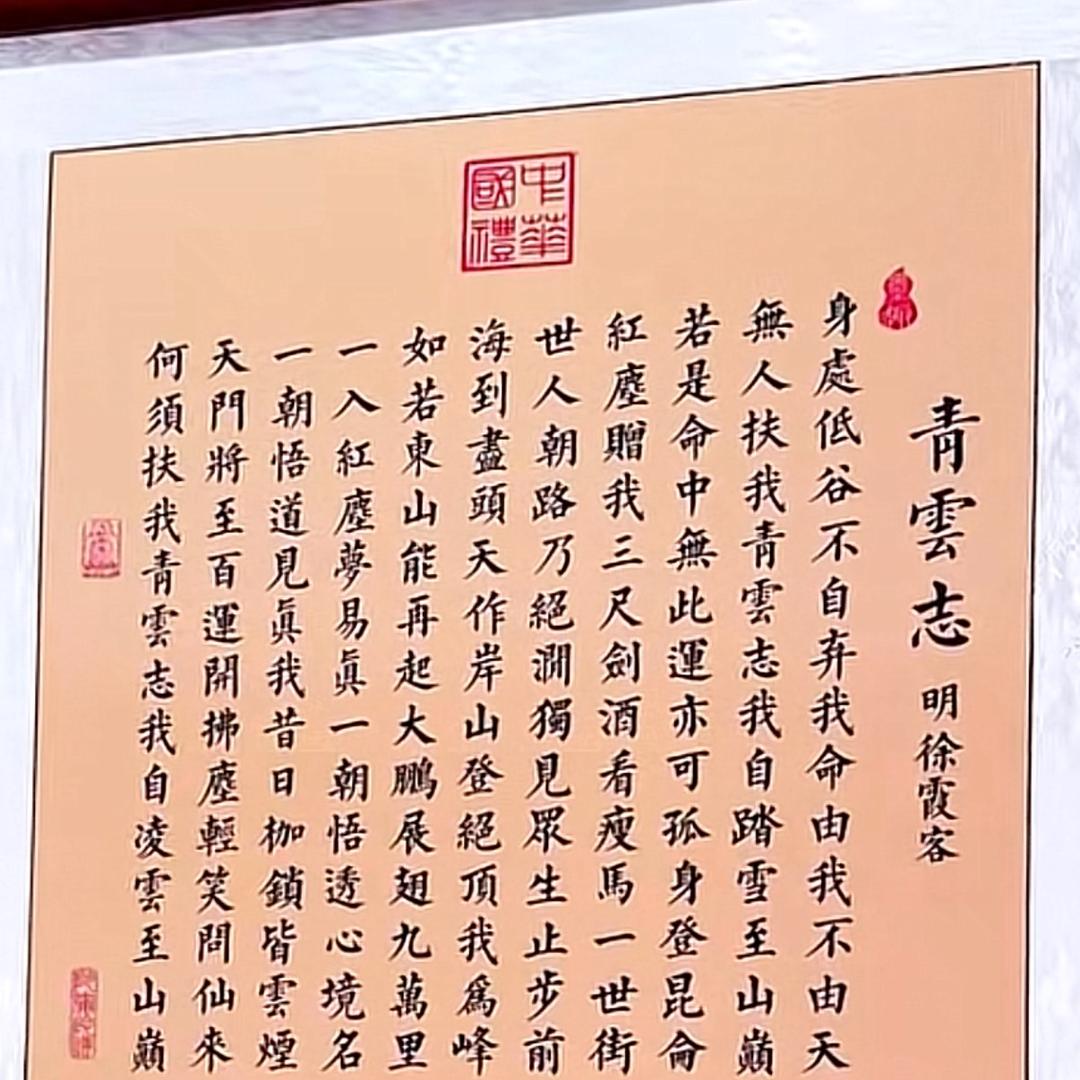 中華國禮
青雲志 明 徐霞客
身處低谷不自弃我命由我不由天
無人扶我青雲志我自踏雪至山巔
若是命中無此運亦可孤身登昆侖
紅塵贈我三尺劍酒看瘦馬一世街
世人朝路乃絕澗獨見眾生止步前
海到盡頭天作岸山登絕頂我為峰
如若東山能再起大鵬展翅九萬里
一入紅塵夢易真一朝悟透心境名
一朝悟道見真我昔日枷鎖皆雲煙
天門將至百運開拂塵輕笑問仙來
何須扶我青雲志我自凌雲至山巔